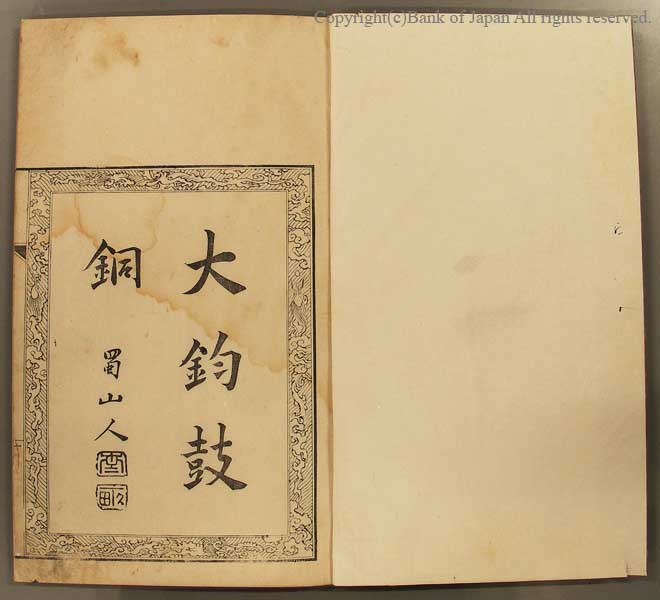 Copyright(c)Bank of Japan All rights reserved.
大鈞鼓
銅
蜀山人